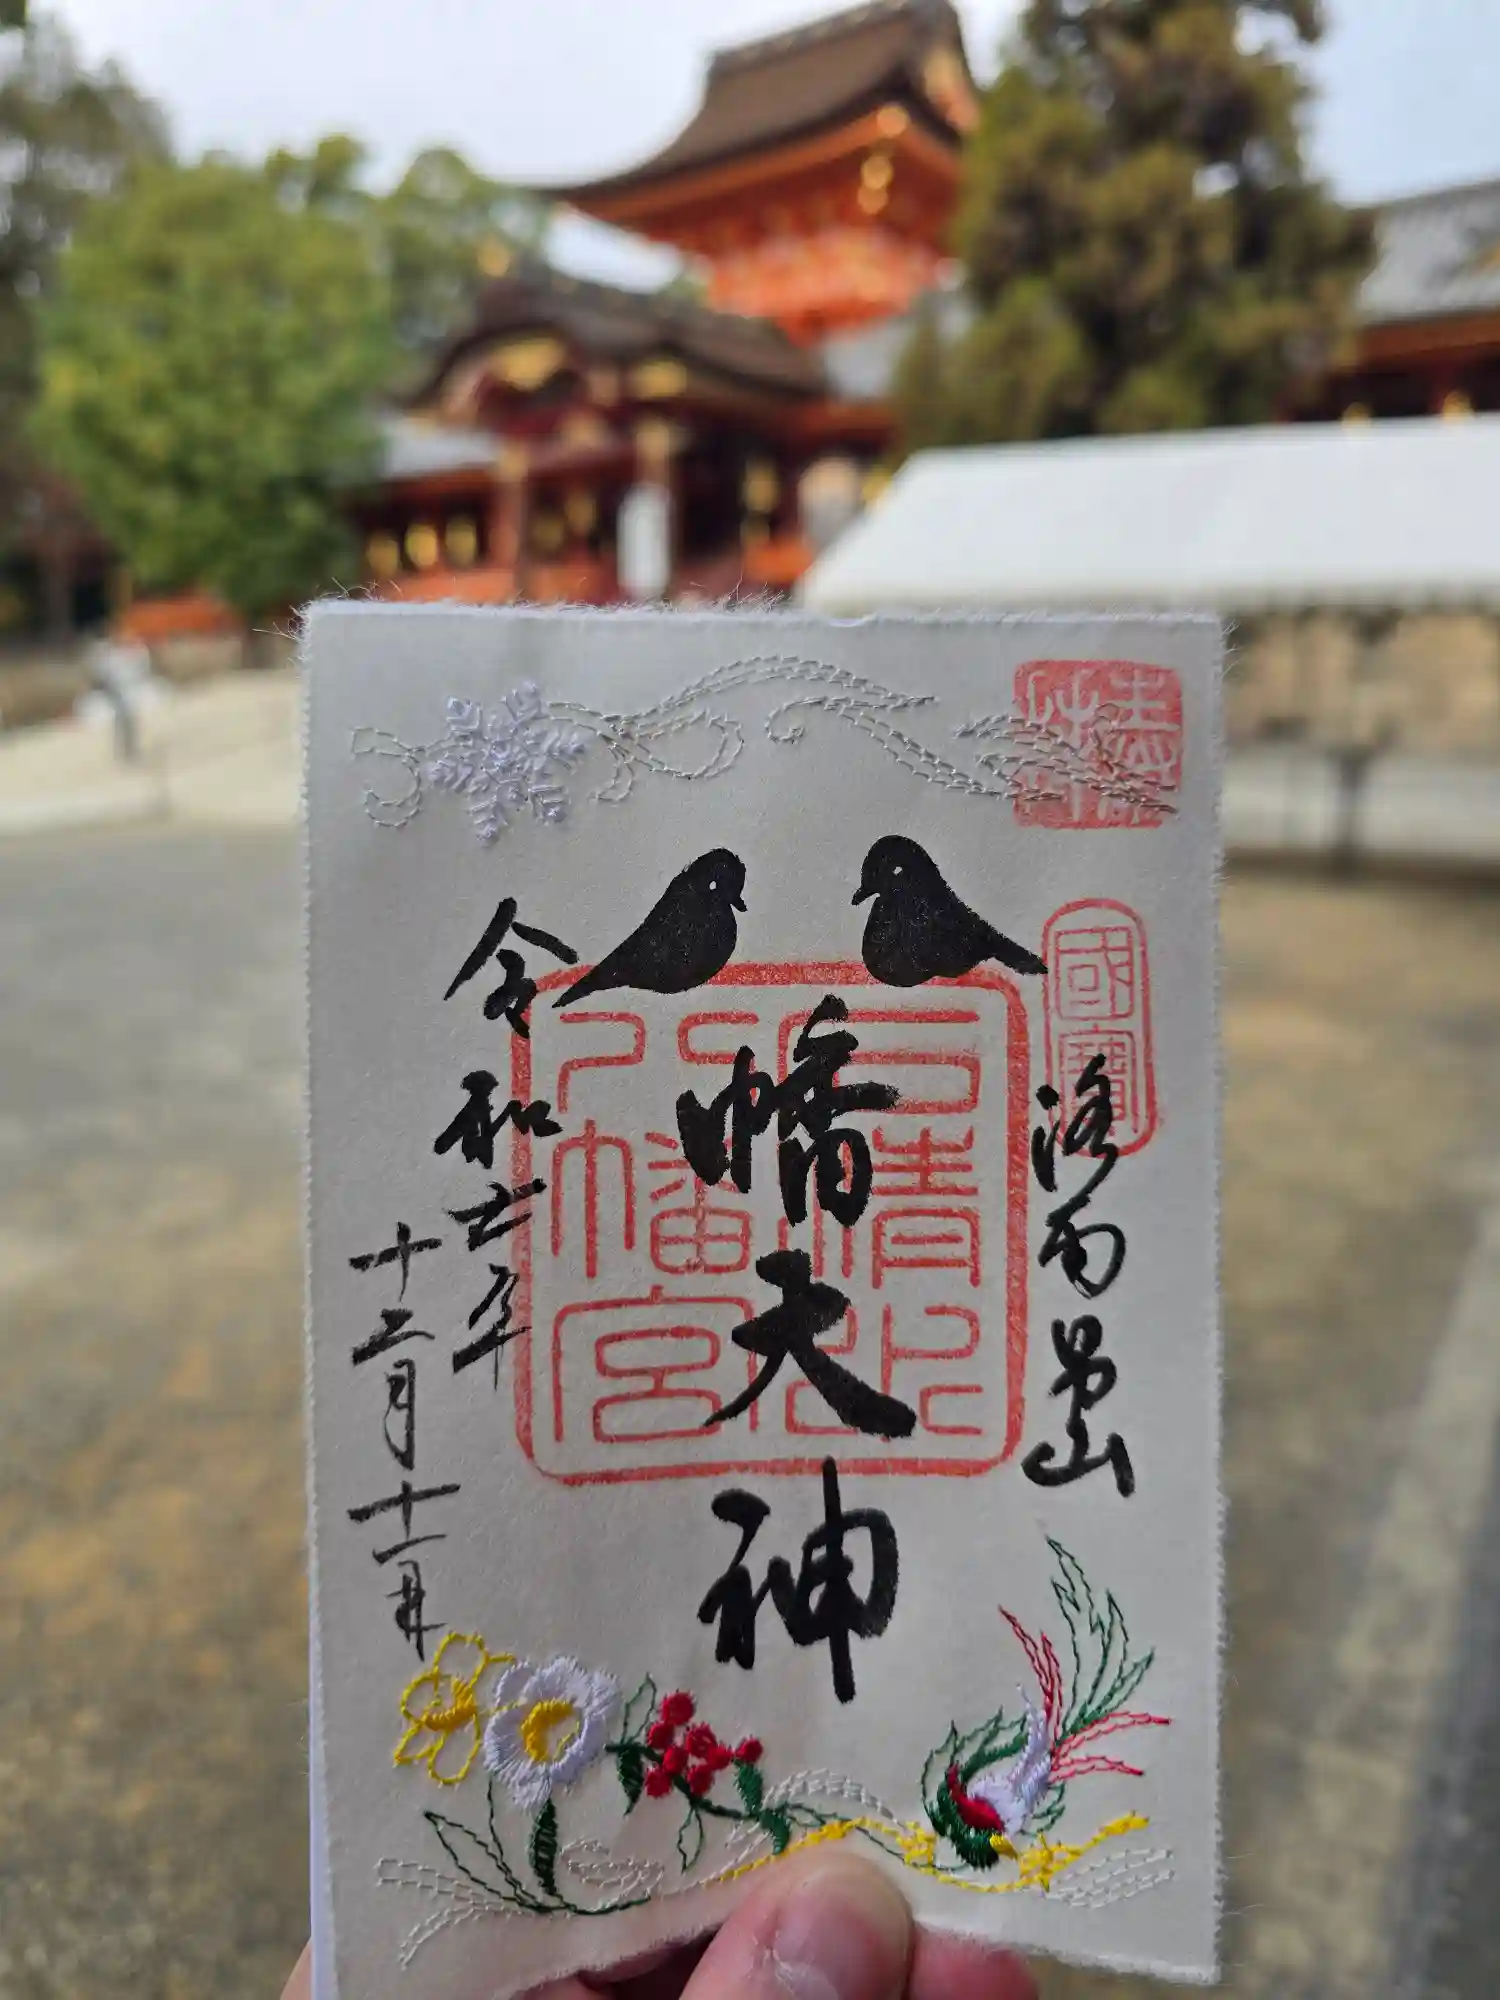 奉拝
國寶
洛南男山
石清水
八幡宮
幡大神
令和七年
十二月十一日